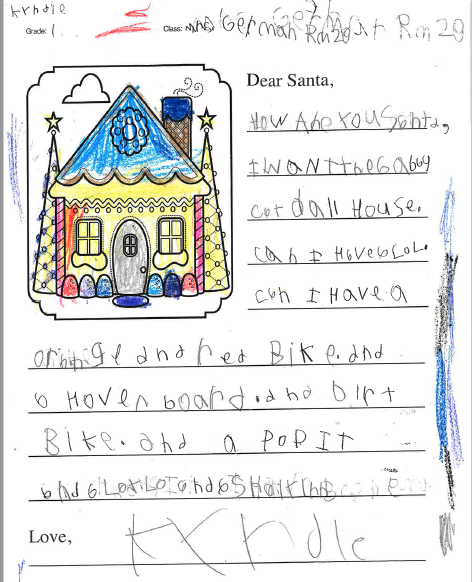 Kyndle
Grade: 1
Class: Mrs German Rm 20
Rm 20
Dear Santa,
How Are You Santa,
I wANt the Gabby
cat dall House.
can I Have a LOL.
can I Have a
orange and red Bike. and
a Hover board. and Dirt
Bike. and a PoP It
and a
Love,
Kyndle